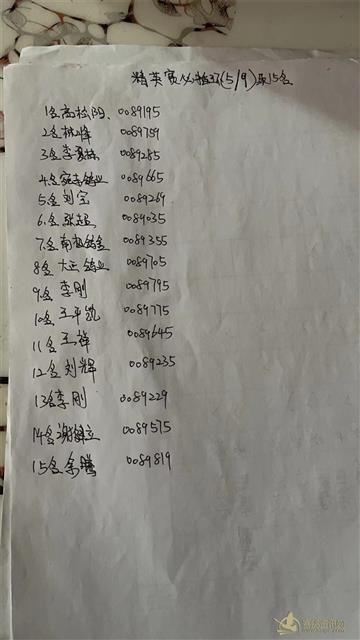 精英赛 (5/9)取15名
1名高松阳、0089195
2名林峰 0089759
3名李 0089285
4名 鸽业 0089665
5名刘宝 0089269
6名张超 0089035
7名南 0089355
8名大正鸽业 0089705
9名李刚 0089795
10名王平凯 0089775
11名王祥 0089645
12名刘辉 0089235
13名李刚 0089229
14名谢 立 0089575
15名余腾 0089819